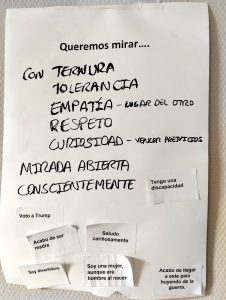 Queremos mirar....
CON TERNURA
TOLERANCIA
EMPATÍA - LUGAR DEL OTRO
RESPETO
CURIOSIDAD - VENCER PREJUICIOS
MIRADA ABIERTA
CONSCIENTEMENTE
Tengo una
discapacidad
Voto a Trump
Acabo de ser
madre
Saludo
cariñosamente
Soy disentibious
Soy una mujer,
aunque era
hombre al nacer
Acabo de llegar
a este país
huyendo de la
guerra.